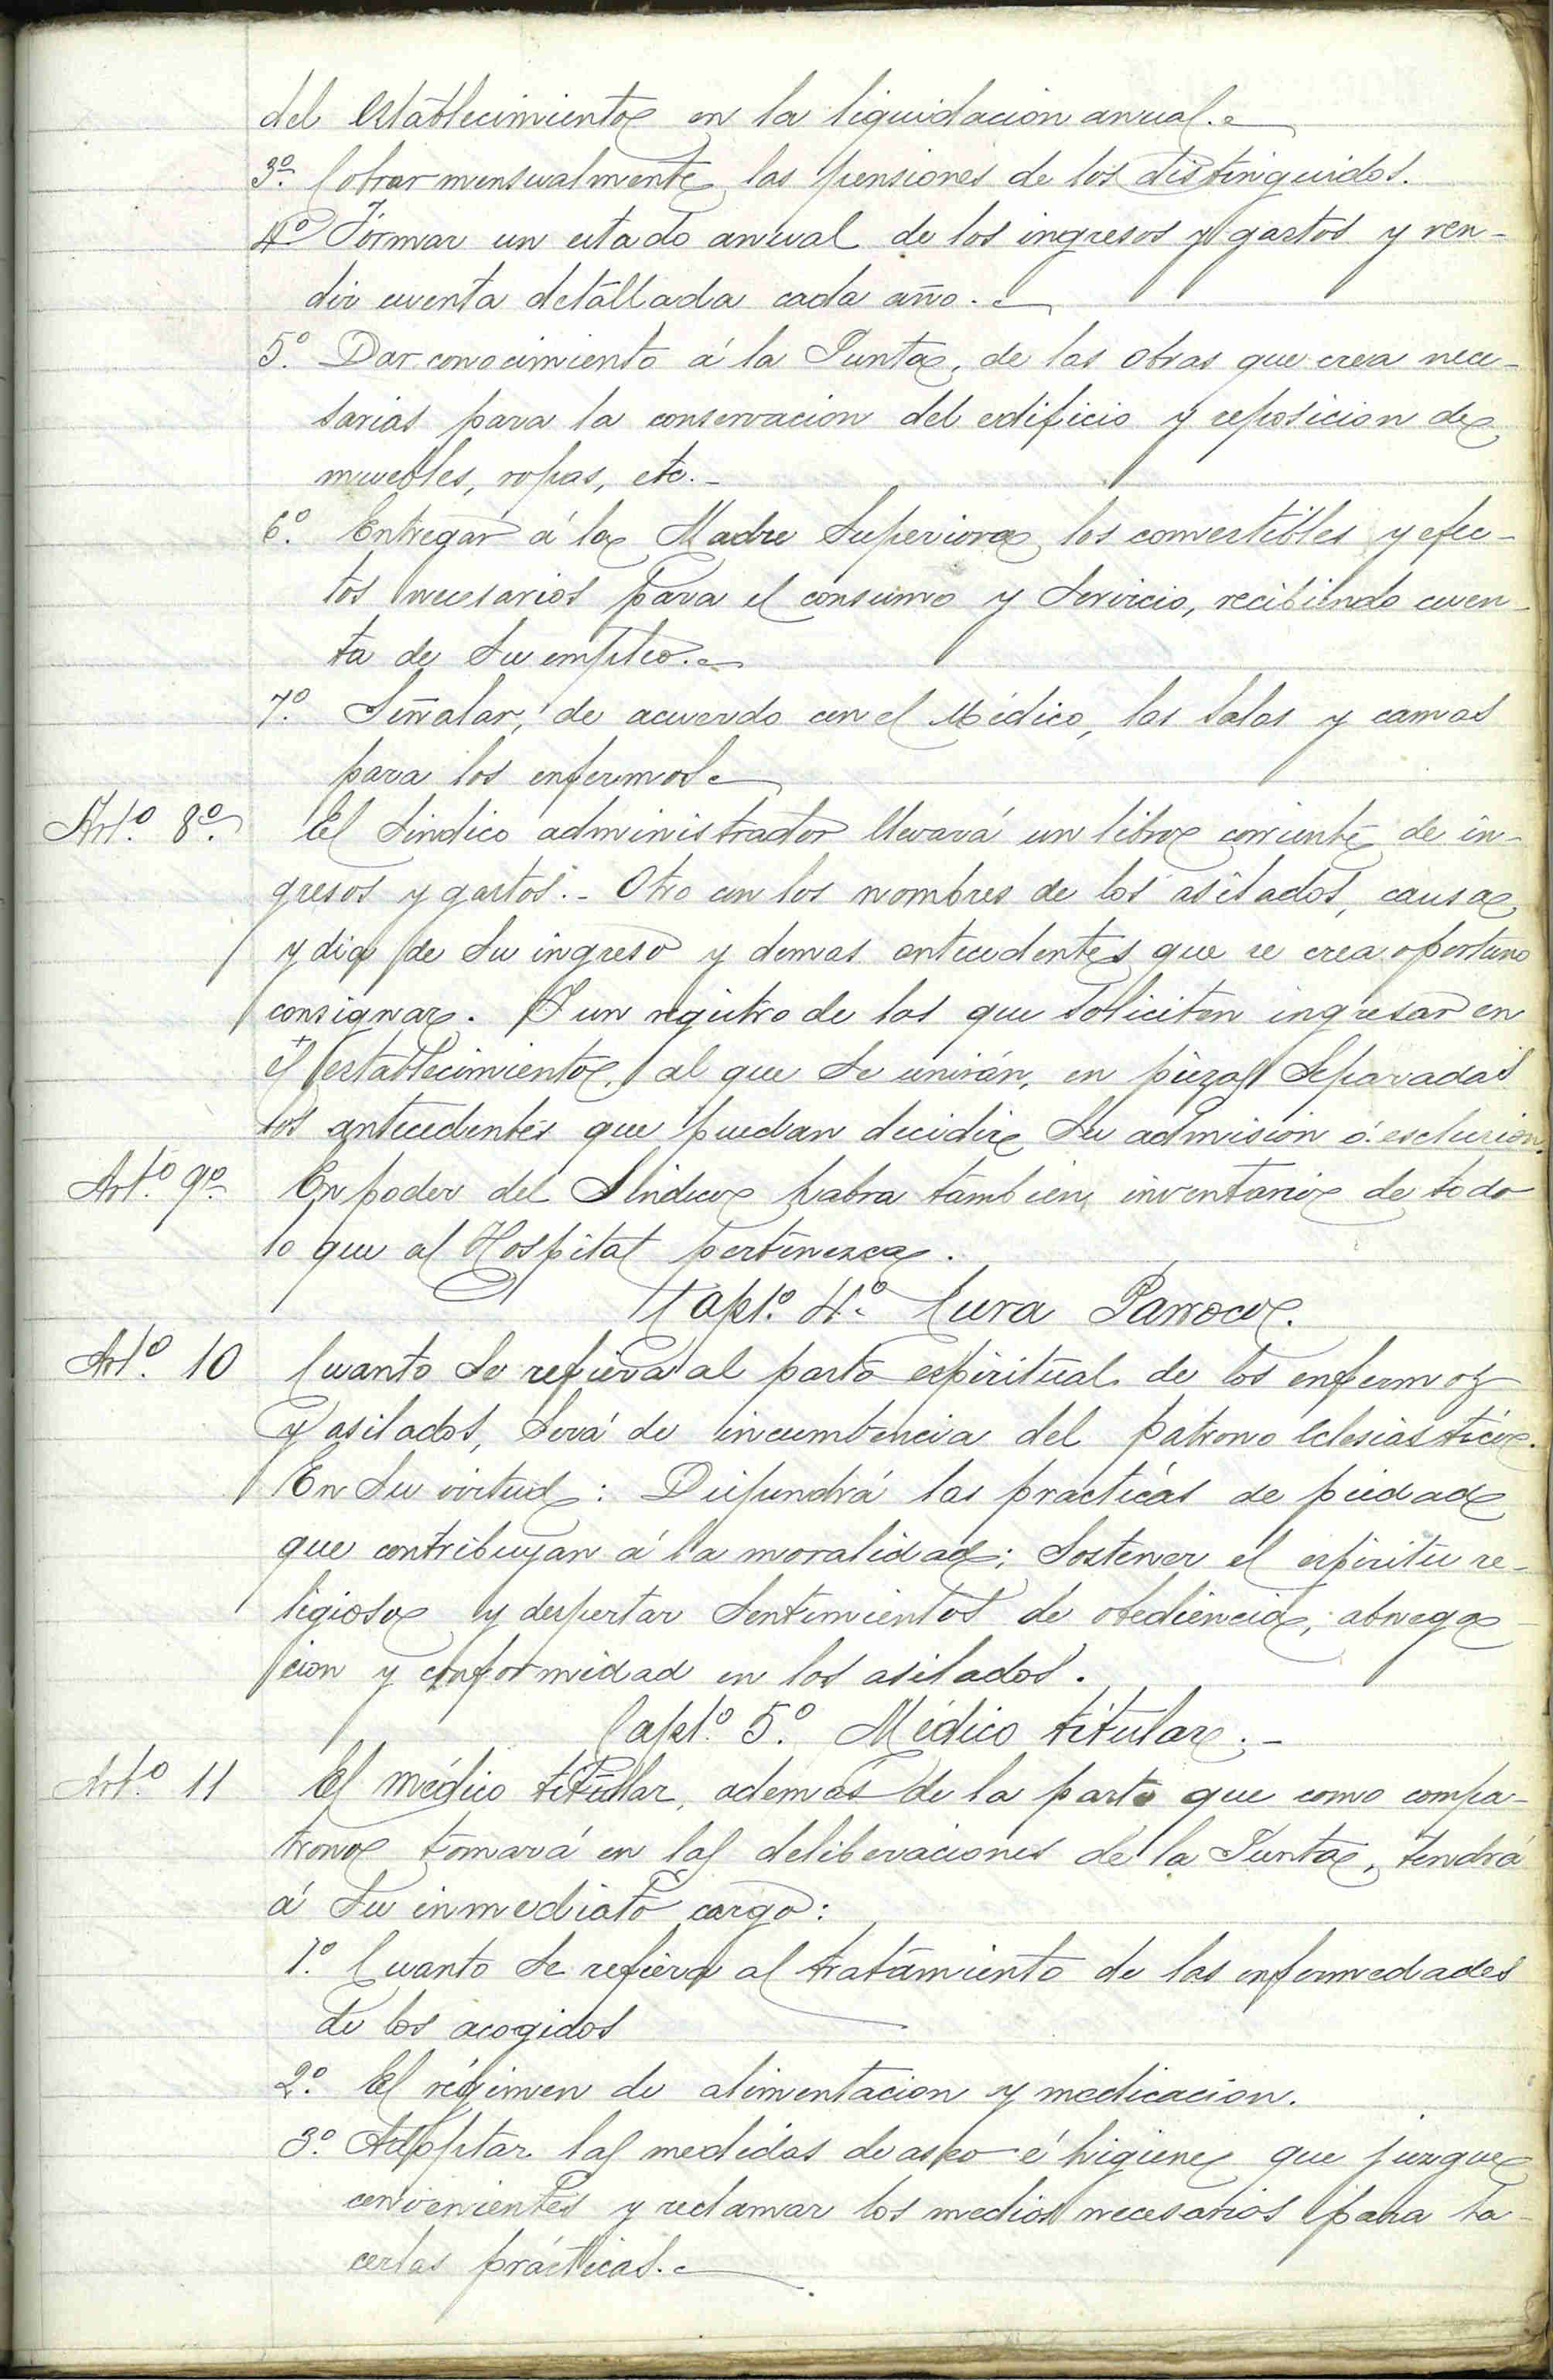 del establecimiento en la liquidacion anual.
3º. Cobrar mensualmente las pensiones de los distinguidos.
4º Formar un estado anual de los ingresos y gastos y ren-
dir cuenta detallada cada año.
5º. Dar conocimiento á la Junta, de las obras que crea nece-
sarias para la conservacion del edificio y reposicion de
muebles, ropas, etc.-
6º. Entregar á la Madre Superiora los comestibles y efec-
tos necesarios para el consumo y servicio, recibiendo cuen-
ta de su empleo.
7º. Señalar, de acuerdo con el Médico, las salas y camas
para los enfermos.
Artº. 8º. El Sindico administrador llevará un libro corriente de in-
gresos y gastos.- Otro con los nombres de los asilados, causa
y dia de su ingreso y demas antecedentes que se crea oportuno
consignar. Y un registro de los que soliciten ingresar en
el establecimiento, al que se unirán, en piezas separadas
los antecedentes que puedan decidir su admision ó esclusion.
Artº. 9º. En poder del Sindico habra tambien, inventario de todo
lo que al Hospital pertenezca.
Captº. 4º. Cura Parroco.
Artº. 10 Cuanto se refiera al pasto espiritual de los enfermos
y asilados, será de incumbencia del patrono eclesiástico.
En su virtud: Difundirá las practicas de piedad
que contribuyan á la moralidad; sostener el espiritu re-
ligioso y despertar sentimientos de obediencia, abnega-
cion y conformidad en los asilados.
Captº. 5º. Médico titular.-
Artº. 11 El médico titular, ademas de la parte que como compa-
trono tomará en las deliberaciones de la Junta, tendrá
á su inmediato cargo:
1º. Cuanto se refiera al tratamiento de las enfermedades
de los acogidos
2º. El régimen de alimentacion y medicacion.
3º. Adoptar las medidas de aseo é higiene que juzgue
convenientes y reclamar los medios necesarios para ha-
cerlas prácticas.